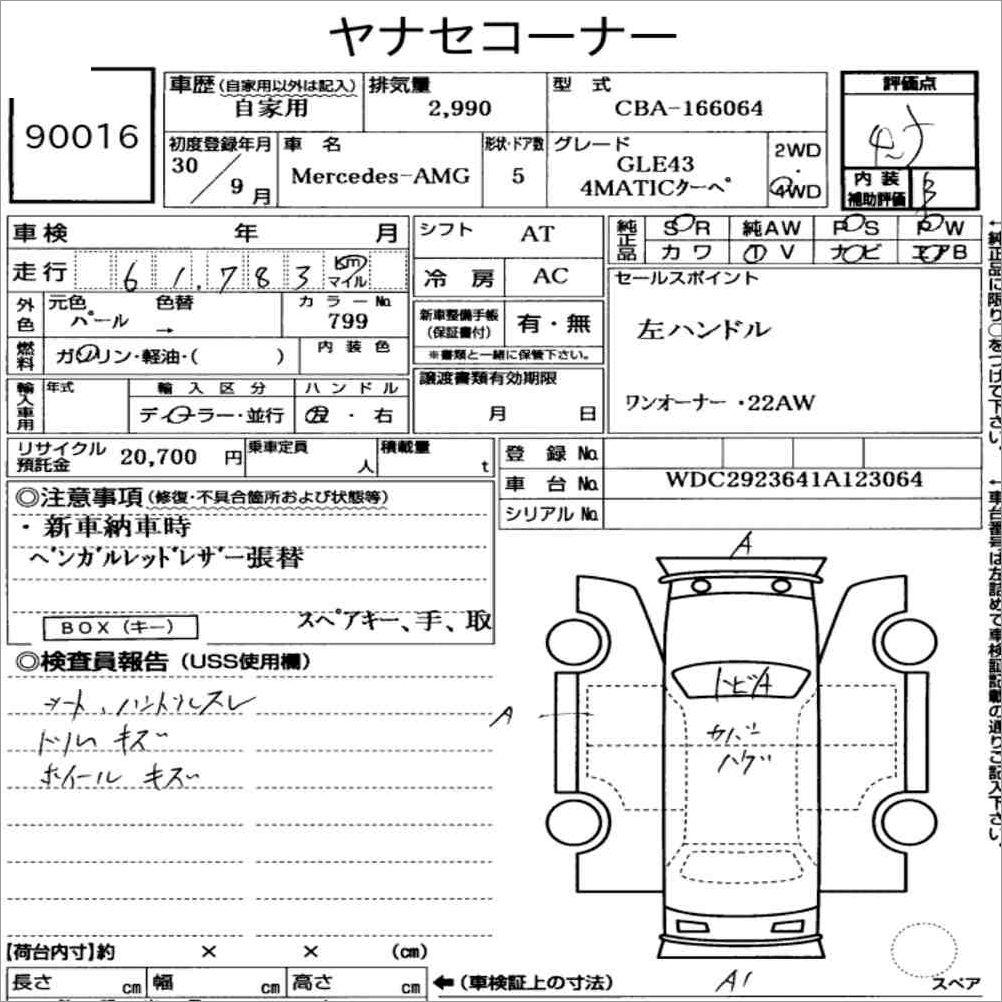 ヤナセコーナー
90016
車歴(自家用以外は記入) 自家用
排気量 2,990
型 式 CBA-166064
評価点
初度登録年月 30/9月
車 名 Mercedes-AMG
形状・ドア数 5
グレード GLE43
4MATICクーペ
2WD
・
4WD
内 装
補助評価 B
車検 年 月
シフト AT
純正品
SR 純AW PS PW
カワ ①V ナビ エアB
走行 61,783 km
マイル
冷 房 AC
セールスポイント
外色 元色 パール
色替 →
カラーNo. 799
新車整備手帳
(保証書付) 有・無
※書類と一緒に保管下さい。
左ハンドル
燃料 ガソリン・軽油・( )
内 装 色
譲渡書類有効期限
月 日
輸入車用 年式
輸 入 区 分
ディーラー・並行
ハ ン ド ル
左 ・ 右
ワンオーナー ・22AW
リサイクル
預託金 20,700 円
乗車定員 人
積載量 t
登 録 No.
車 台 No. WDC2923641A123064
シリアル No.
◎注意事項(修復・不具合箇所および状態等)
・新車納車時
ベンガルレッドレザー張替
スペアキー、手、取
BOX (キー)
◎検査員報告(USS使用欄)
シート、ハンドルスレ
ドリム キズ
ホイール キズ
A
トビA
A
カバー
ハゲ
A1
【荷台内寸】約 × × (cm)
長さ cm 幅 cm 高さ cm
←(車検証上の寸法)
スペア
←純正品に限り○をつけて下さい。
←車台番号は左詰めで車検証記載の通りご記入下さい。